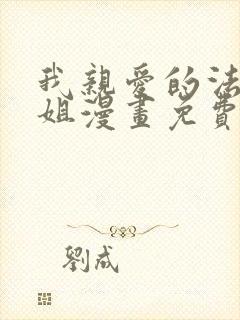 我親愛的法
姐漫畫免費
劉成